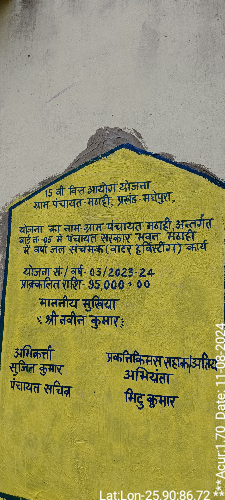 15 वी वित्त आयोग योजना
ग्राम पंचायत मठाही, प्रखंड-मधेपुरा,
योजना का नाम ग्राम पंचायत मठाही अन्तर्गत
वार्ड नं-05 में पंचायत सरकार भवन मठाही
में वर्षा जल संचयन (वाटर हर्वेस्टिंग) कार्य
योजना सं/ वर्ष-05/2023-24
प्राक्कलित राशि-95,000=00
माननीय मुखिया
श्री नवीन कुमार
अभिकर्त्ता
सुजित कुमार
पंचायत सचिव
अभियंता
मिटु कुमार
Lat:Lon-25.90:86.72
***Acur:1.70 Date: 11-08-2024